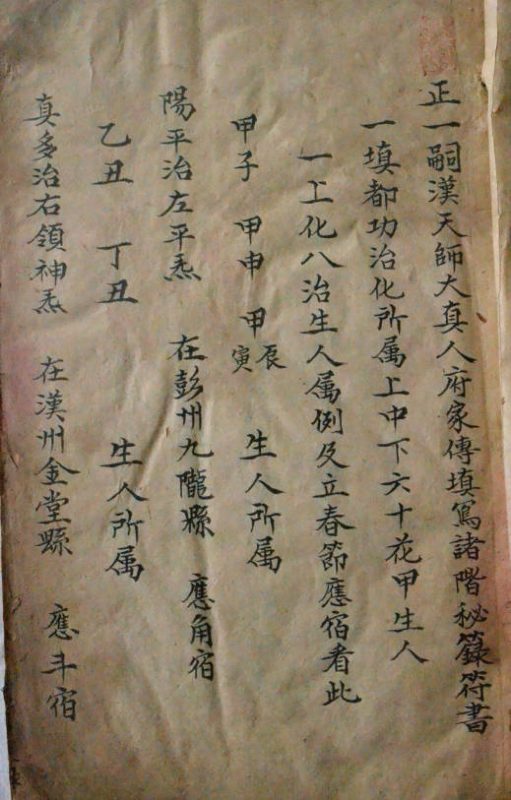 正一嗣漢天師大真人府家傳填寫諸階秘籙符書
一填都功治化所属上中下六十花甲生人
一上化八治生人属例及立春節應宿者此
甲子 甲申 甲寅辰 生人所属
陽平治左平炁 在彭州九隴縣 應角宿
乙丑 丁丑 生人所属
真多治右領神炁 在漢州金堂縣 應斗宿